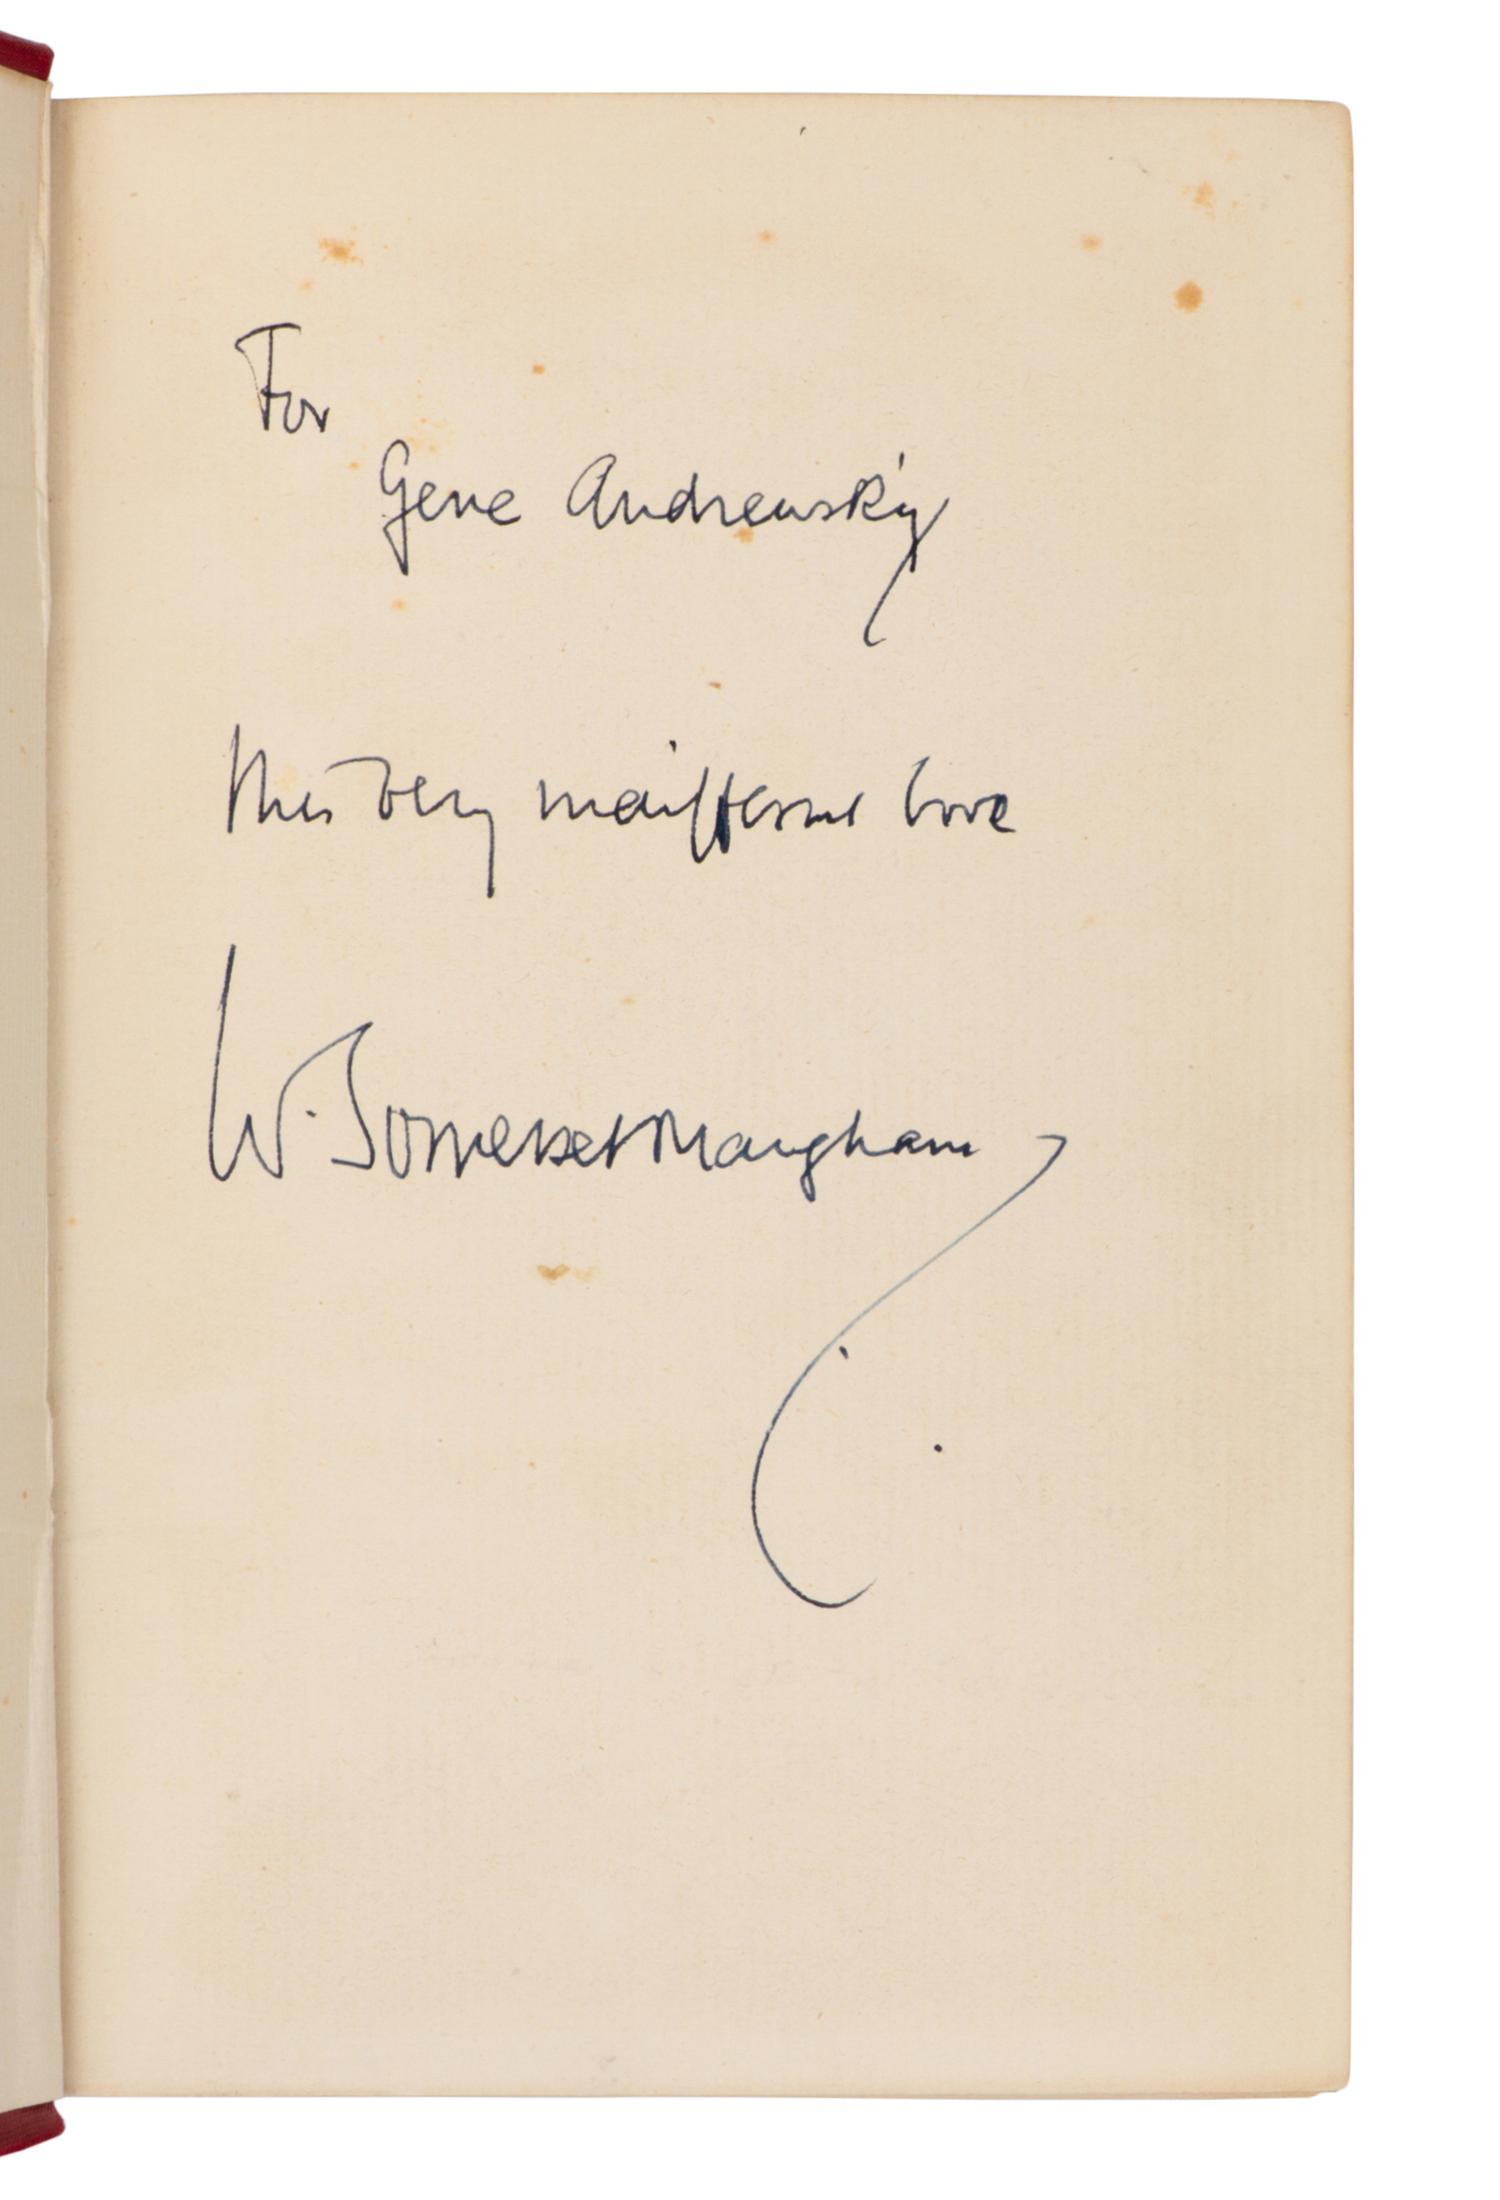 For
Gene Andrewsky
this very indifferent book
W. Somerset Maugham